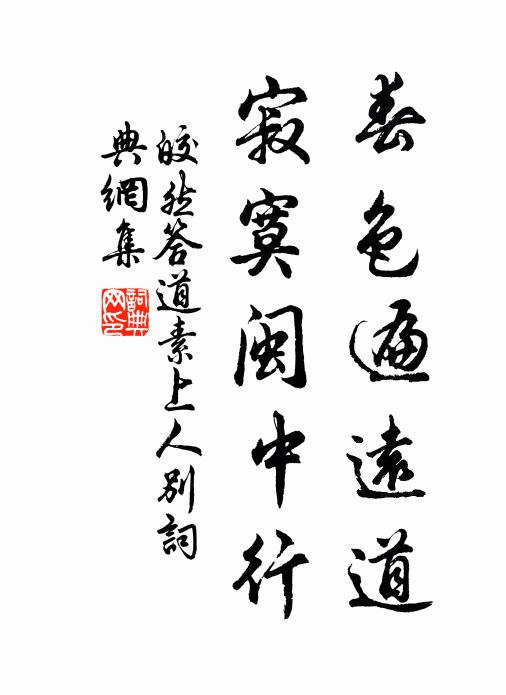 春色遍遠道
寂寞閩中行
皎然答道素上人別詞
典網集
詞典網印